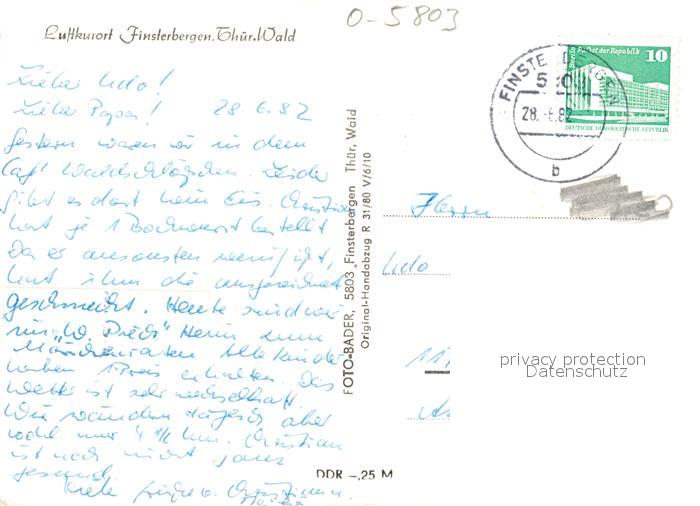 O-5803
Luftkurort Finsterbergen, Thür. Wald
Lieber Udo!
Lieber Papa! 28 6. 82
Gestern waren wir in dem
Café Waldschlößchen. Leider
gibt es dort kein Eis. Christian
hat je 1 Bockwurst bestellt
Da er ansonsten wenig ißt,
hat ihm die ausgezeichnet
geschmeckt. Heute sind wir
ins "W. Pieck" Heim zum
Märchenraten Alle Kinder
haben 1 Preis erhalten. Das
Wetter ist sehr wechselhaft.
Wir wandern täglich aber
wohl nur 4 1/2 km. Christian
ist noch nicht ganz
gesund.
Viele Grüße v. Christian
FOTO-BADER, 5803 Finsterbergen Thür. Wald
Original-Handabzug R 31/80 V/6/10
DDR -,25 M
Berlin Palast der Republik 10
DEUTSCHE DEMOKRATISCHE REPUBLIK
FINSTERBERGEN
28. -6.82
b
Herrn
Udo
privacy protection
Datenschutz